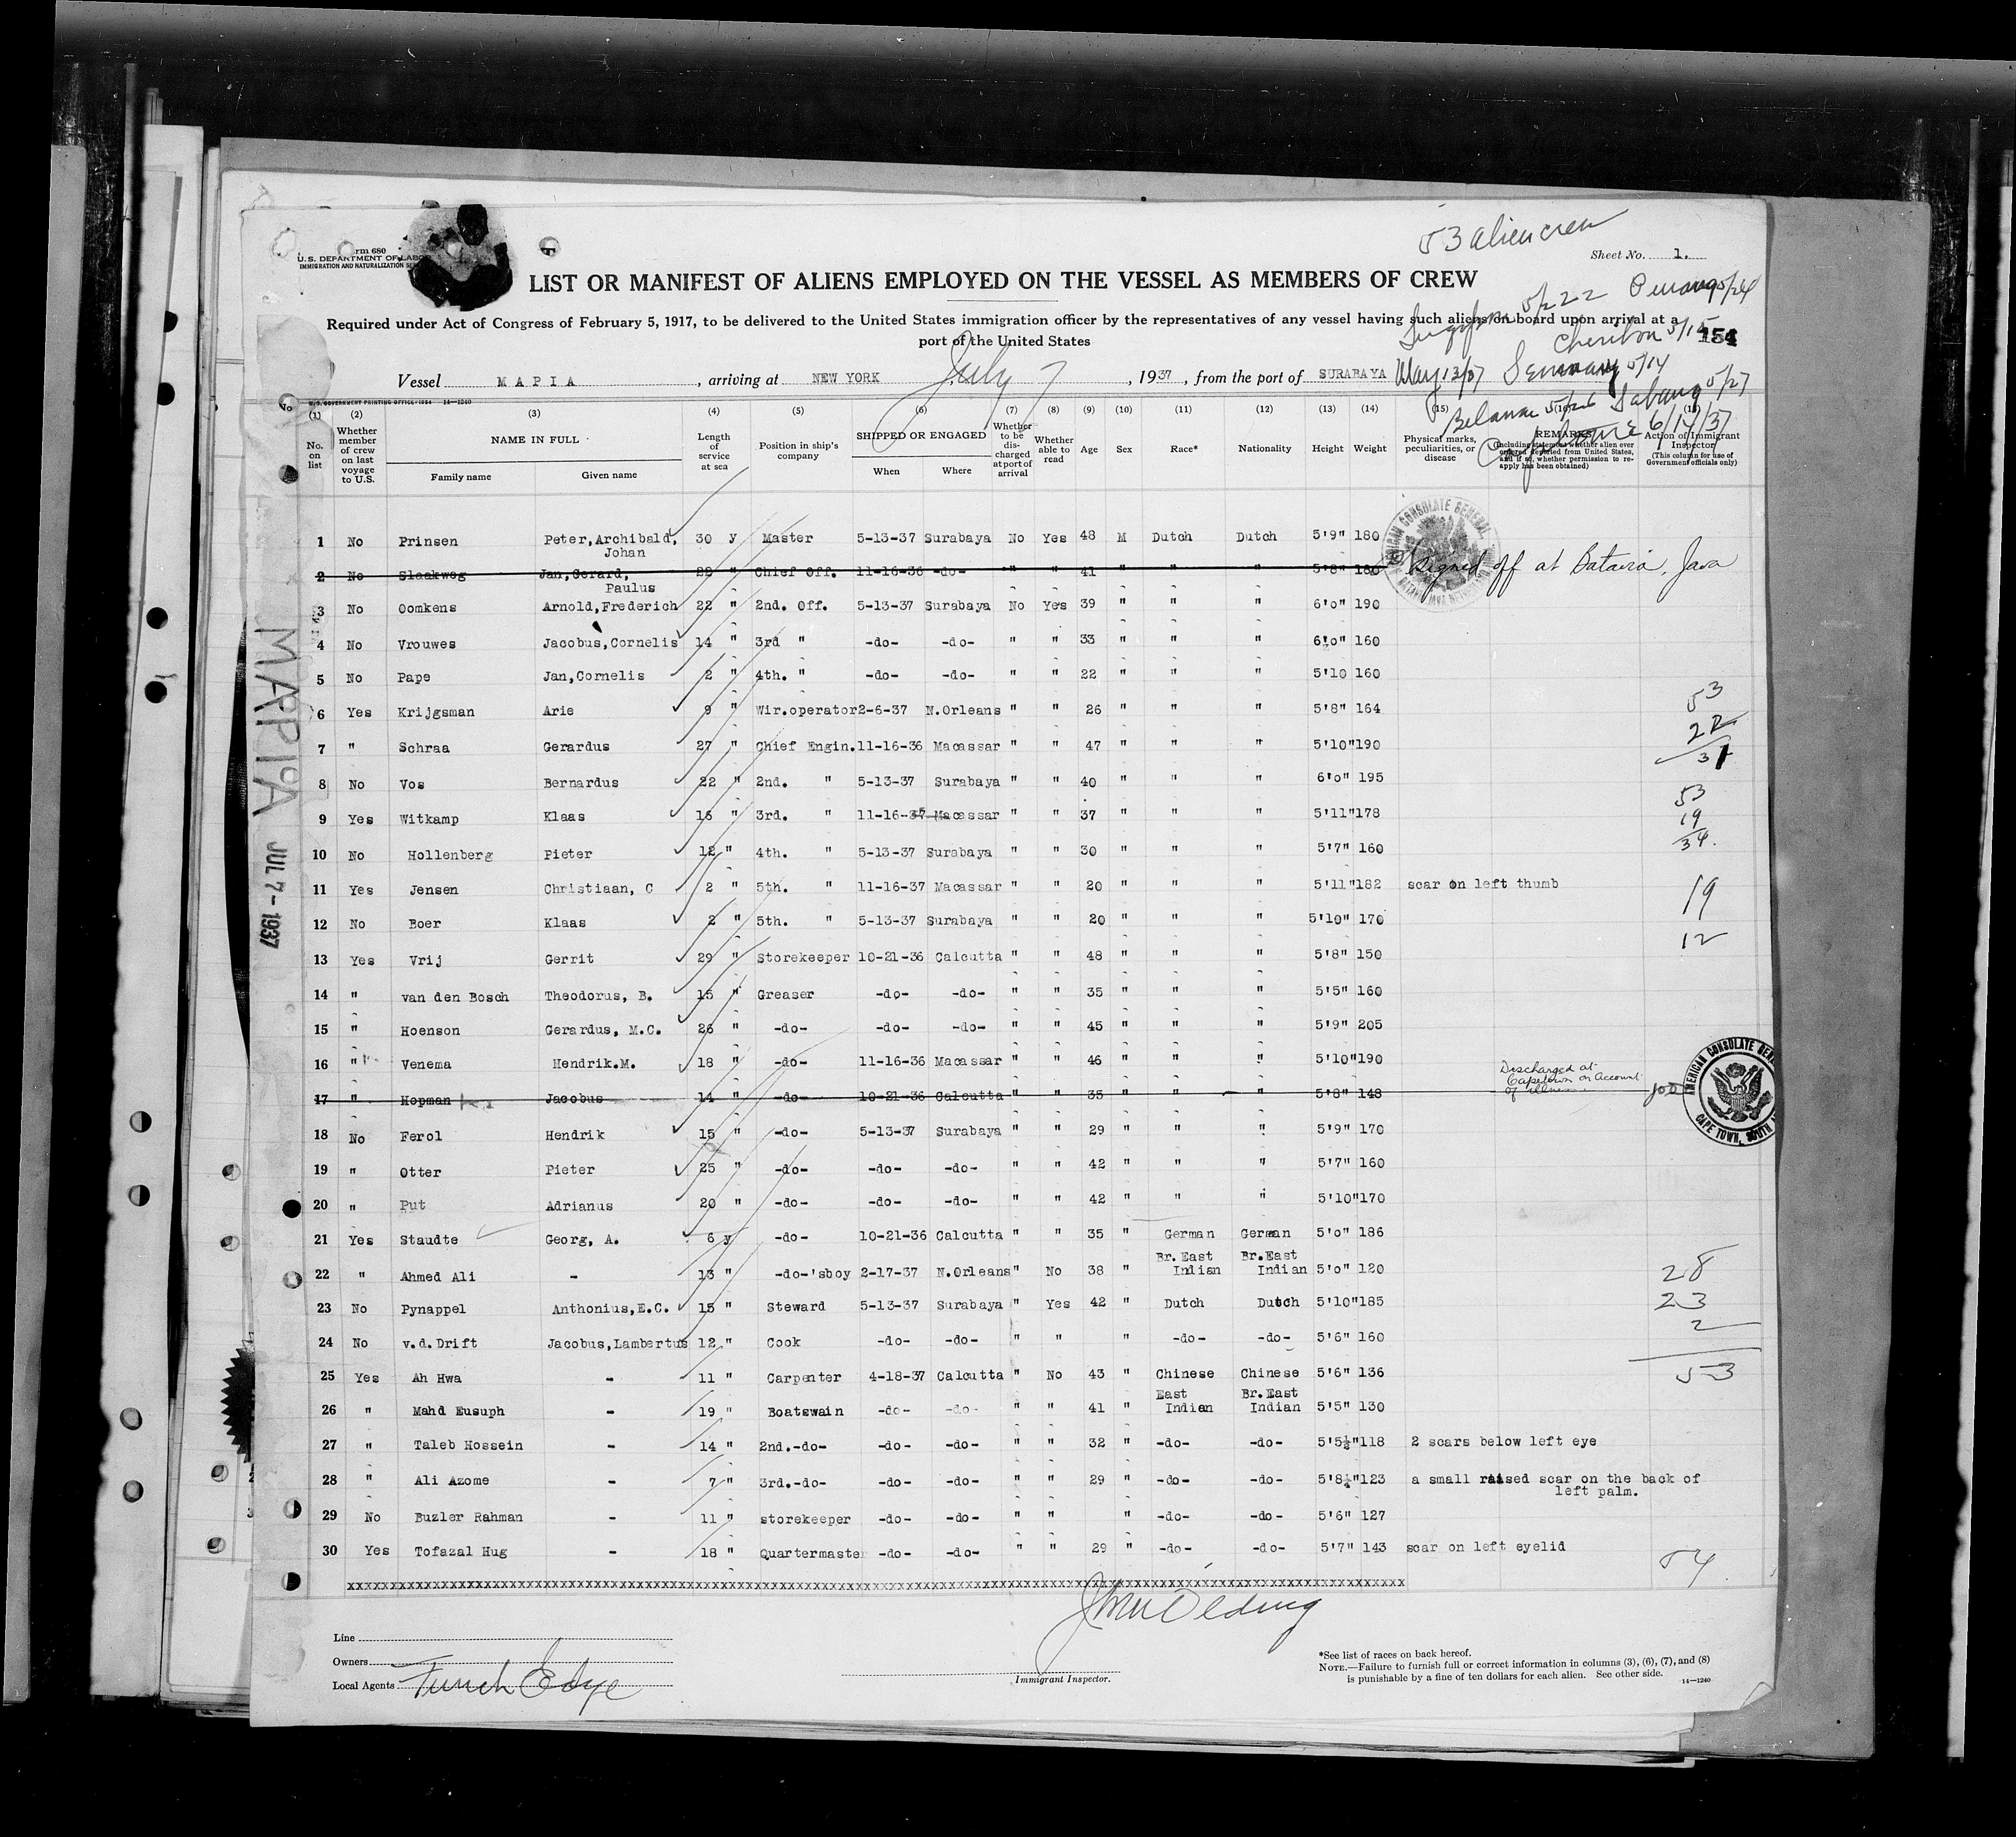 53 alien crew
Form 680
U.S. DEPARTMENT OF LABOR
IMMIGRATION AND NATURALIZATION SER
Sheet No. 1.
LIST OR MANIFEST OF ALIENS EMPLOYED ON THE VESSEL AS MEMBERS OF CREW
Required under Act of Congress of February 5, 1917, to be delivered to the United States immigration officer by the representatives of any vessel having such aliens on board upon arrival at a
port of the United States
Penang 5/24
Cheribon 5/15
154
Vessel MAPIA, arriving at NEW YORK July 7, 1937, from the port of SURABAYA May 13/37 Semarang 5/14
Belawan 5/26 Sabang 5/27
Capetown 6/14/37
U.S. GOVERNMENT PRINTING OFFICE: 1934 14—1240
No
(1) (2) (3) (4) (5) (6) (7) (8) (9) (10) (11) (12) (13) (14) (15) (16) (17)
No. on list
Whether member of crew on last voyage to U.S.
NAME IN FULL
Family name
Given name
Length of service at sea
Position in ship's company
SHIPPED OR ENGAGED
When
Where
Whether to be discharged at port of arrival
Whether able to read
Age
Sex
Race*
Nationality
Height
Weight
Physical marks, peculiarities, or disease
REMARKS
(Including statement whether alien ever ordered deported from United States, and if so, whether permission to reapply has been obtained)
Action of Immigrant Inspector
(This column for use of Government officials only)
1 No Prinsen Peter,Archibald, Johan 30 y Master 5-13-37 Surabaya No Yes 48 M Dutch Dutch 5'9" 180
2 No Slaakweg Jan,Gerard, Paulus 22 " Chief Off. 11-16-36 -do- " " 41 " " " 5'8" 180 Signed off at Batavia, Java
3 No Oomkens Arnold,Frederich 22 " 2nd. Off. 5-13-37 Surabaya No Yes 39 " " " 6'0" 190
4 No Vrouwes Jacobus,Cornelis 14 " 3rd " -do- -do- " " 33 " " " 6'0" 160
5 No Pape Jan,Cornelis 2 " 4th. " -do- -do- " " 22 " " " 5'10 160
6 Yes Krijgsman Arie 9 " Wir.operator 2-6-37 N.Orleans " " 26 " " " 5'8" 164
7 " Schraa Gerardus 27 " Chief Engin. 11-16-36 Macassar " " 47 " " " 5'10" 190
8 No Vos Bernardus 22 " 2nd. " 5-13-37 Surabaya " " 40 " " " 6'0" 195
9 Yes Witkamp Klaas 16 " 3rd. " 11-16-37 Macassar " " 37 " " " 5'11" 178
10 No Hollenberg Pieter 12 " 4th. " 5-13-37 Surabaya " " 30 " " " 5'7" 160
11 Yes Jensen Christiaan, C 2 " 5th. " 11-16-37 Macassar " " 20 " " " 5'11" 182 scar on left thumb
12 No Boer Klaas 2 " 5th. " 5-13-37 Surabaya " " 20 " " " 5'10" 170
13 Yes Vrij Gerrit 29 " Storekeeper 10-21-36 Calcutta " " 48 " " " 5'8" 150
14 " van den Bosch Theodorus, B. 15 " Greaser -do- -do- " " 35 " " " 5'5" 160
15 " Hoenson Gerardus, M.C. 26 " -do- -do- -do- " " 45 " " " 5'9" 205
16 " Venema Hendrik.M. 18 " -do- 11-16-36 Macassar " " 46 " " " 5'10" 190
17 " Hopman Jacobus 14 " -do- 10-21-36 Calcutta " " 35 " " " 5'8" 148 Discharged at Capetown on Account of illness
18 No Ferol Hendrik 15 " -do- 5-13-37 Surabaya " " 29 " " " 5'9" 170
19 " Otter Pieter 25 " -do- -do- -do- " " 42 " " " 5'7" 160
20 " Put Adrianus 20 " -do- -do- -do- " " 42 " " " 5'10" 170
21 Yes Staudte Georg, A. 6 y -do- 10-21-36 Calcutta " " 35 " German German 5'0" 186
22 " Ahmed Ali - 13 " -do-'sboy 2-17-37 N.Orleans " No 38 " Br. East Indian Br.East Indian 5'0" 120
23 No Pynappel Anthonius,E.C. 15 " Steward 5-13-37 Surabaya " Yes 42 " Dutch Dutch 5'10" 185
24 No v.d.Drift Jacobus,Lambertus 12 " Cook -do- -do- " " " -do- -do- 5'6" 160
25 Yes Ah Hwa - 11 " Carpenter 4-18-37 Calcutta " No 43 " Chinese Chinese 5'6" 136
26 " Mahd Eusuph - 19 " Boatswain -do- -do- " " 41 " East Indian Br.East Indian 5'5" 130
27 " Taleb Hossein - 14 " 2nd.-do- -do- -do- " " 32 " -do- -do- 5'5½" 118 2 scars below left eye
28 " Ali Azome - 7 " 3rd.-do- -do- -do- " " 29 " -do- -do- 5'8¼" 123 a small raised scar on the back of left palm.
29 No Buzler Rahman - 11 " storekeeper -do- -do- " " " -do- -do- 5'6" 127
30 Yes Tofazal Hug - 18 " Quartermaster -do- -do- " " 29 " -do- -do- 5'7" 143 scar on left eyelid
53
22
31
53
19
34.
19
12
28
23
2
53
54
MAPIA
JUL 7 - 1937
AMERICAN CONSULATE GENERAL
AMERICAN CONSULATE GENERAL
CAPE TOWN, SOUTH
Line
Owners
Local Agents Funch Edye
Immigrant Inspector.
*See list of races on back hereof.
NOTE.—Failure to furnish full or correct information in columns (3), (6), (7), and (8)
is punishable by a fine of ten dollars for each alien. See other side.
14—1240